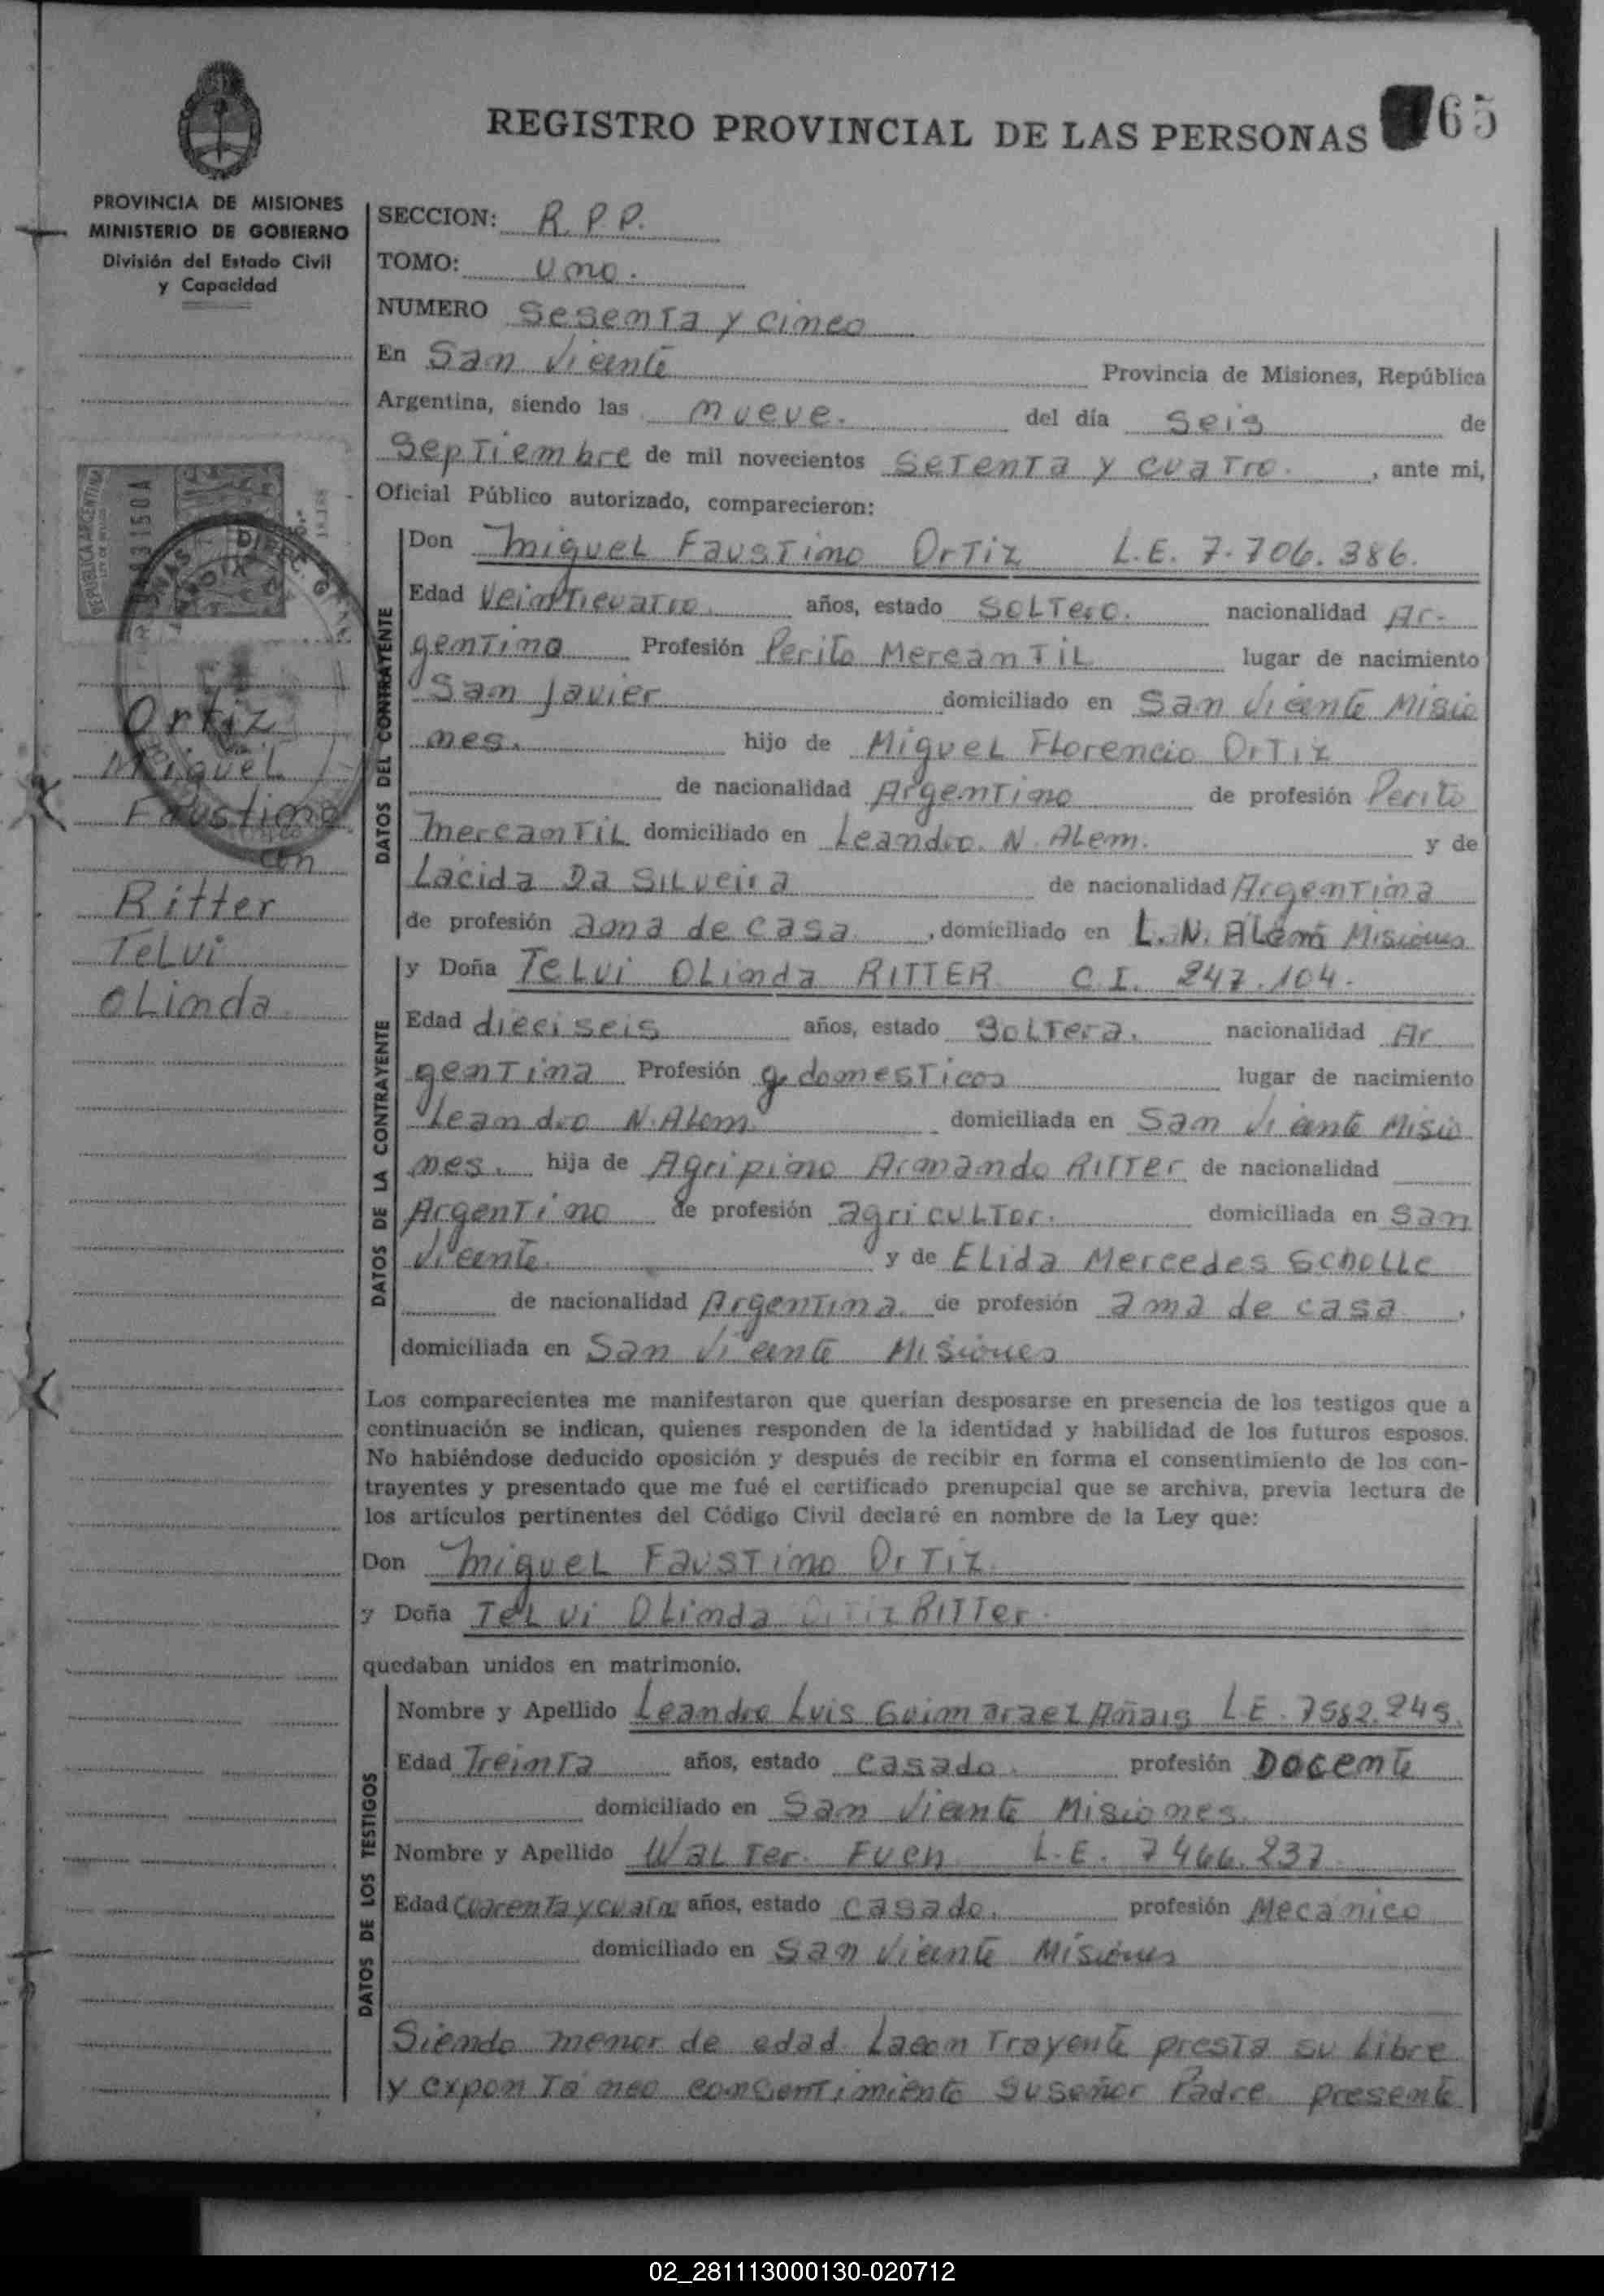 REGISTRO PROVINCIAL DE LAS PERSONAS 65
PROVINCIA DE MISIONES
MINISTERIO DE GOBIERNO
División del Estado Civil
y Capacidad
REPUBLICA ARGENTINA
Ortiz
Miguel
Faustino
con
Ritter
Telvi
Olinda
SECCION: R.P.P.
TOMO: uno.
NUMERO Sesenta y cinco
En San Vicente Provincia de Misiones, República
Argentina, siendo las nueve. del día seis de
Septiembre de mil novecientos setenta y cuatro. , ante mi,
Oficial Público autorizado, comparecieron:
DATOS DEL CONTRATENTE
Don Miguel Faustino Ortiz L.E. 7.706.386.
Edad veinticuatro. años, estado soltero. nacionalidad Ar-
gentino Profesión Perito Mercantil lugar de nacimiento
San Javier domiciliado en San Vicente Misio
nes. hijo de Miguel Florencio Ortiz
de nacionalidad Argentino de profesión Perito
Mercantil domiciliado en Leandro. N. Alem. y de
Lácida Da Silveira de nacionalidad Argentina
de profesión ama de casa , domiciliado en L. N. Alem Misiones
DATOS DE LA CONTRAYENTE
y Doña Telvi Olinda RITTER C.I. 247.104.
Edad dieciseis años, estado Soltera. nacionalidad Ar
gentina Profesión q. domesticos lugar de nacimiento
Leandro N. Alem. domiciliada en San Vicente Misio
nes. hija de Agripino Armando Ritter de nacionalidad
Argentino de profesión agricultor. domiciliada en San
Vicente. y de Elida Mercedes Scholle
de nacionalidad Argentina. de profesión ama de casa ,
domiciliada en San Vicente Misiones
Los comparecientes me manifestaron que querían desposarse en presencia de los testigos que a
continuación se indican, quienes responden de la identidad y habilidad de los futuros esposos.
No habiéndose deducido oposición y después de recibir en forma el consentimiento de los con-
trayentes y presentado que me fué el certificado prenupcial que se archiva, previa lectura de
los artículos pertinentes del Código Civil declaré en nombre de la Ley que:
Don Miguel Faustino Ortiz.
y Doña Telvi Olinda Ritter.
quedaban unidos en matrimonio.
DATOS DE LOS TESTIGOS
Nombre y Apellido Leandro Luis Guimaraez Añais L.E. 7582.245.
Edad Treinta años, estado casado. profesión Docente
domiciliado en San Vicente Misiones.
Nombre y Apellido Walter. Fuch L.E. 7466.237
Edad Cuarenta y cuatro años, estado casado. profesión Mecánico
domiciliado en San Vicente Misiones
Siendo menor de edad Lacon Trayente presta su libre
y expontáneo consentimiento suseñor Padre presente
02_281113000130-020712